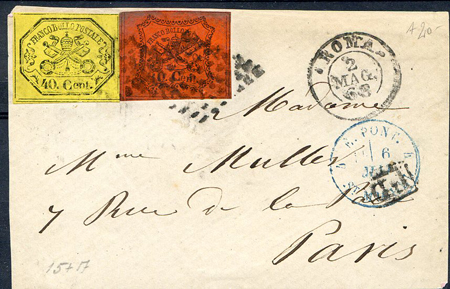 FRANCO BOLLO POSTALE
40. Cent.
FRANCO BOLLO
10 Cent.
ROMA
2
MAG.
68
A 20.-
Madame
E. PONT.
6
Mme Muller
7 Rue de la
Paris
15+17